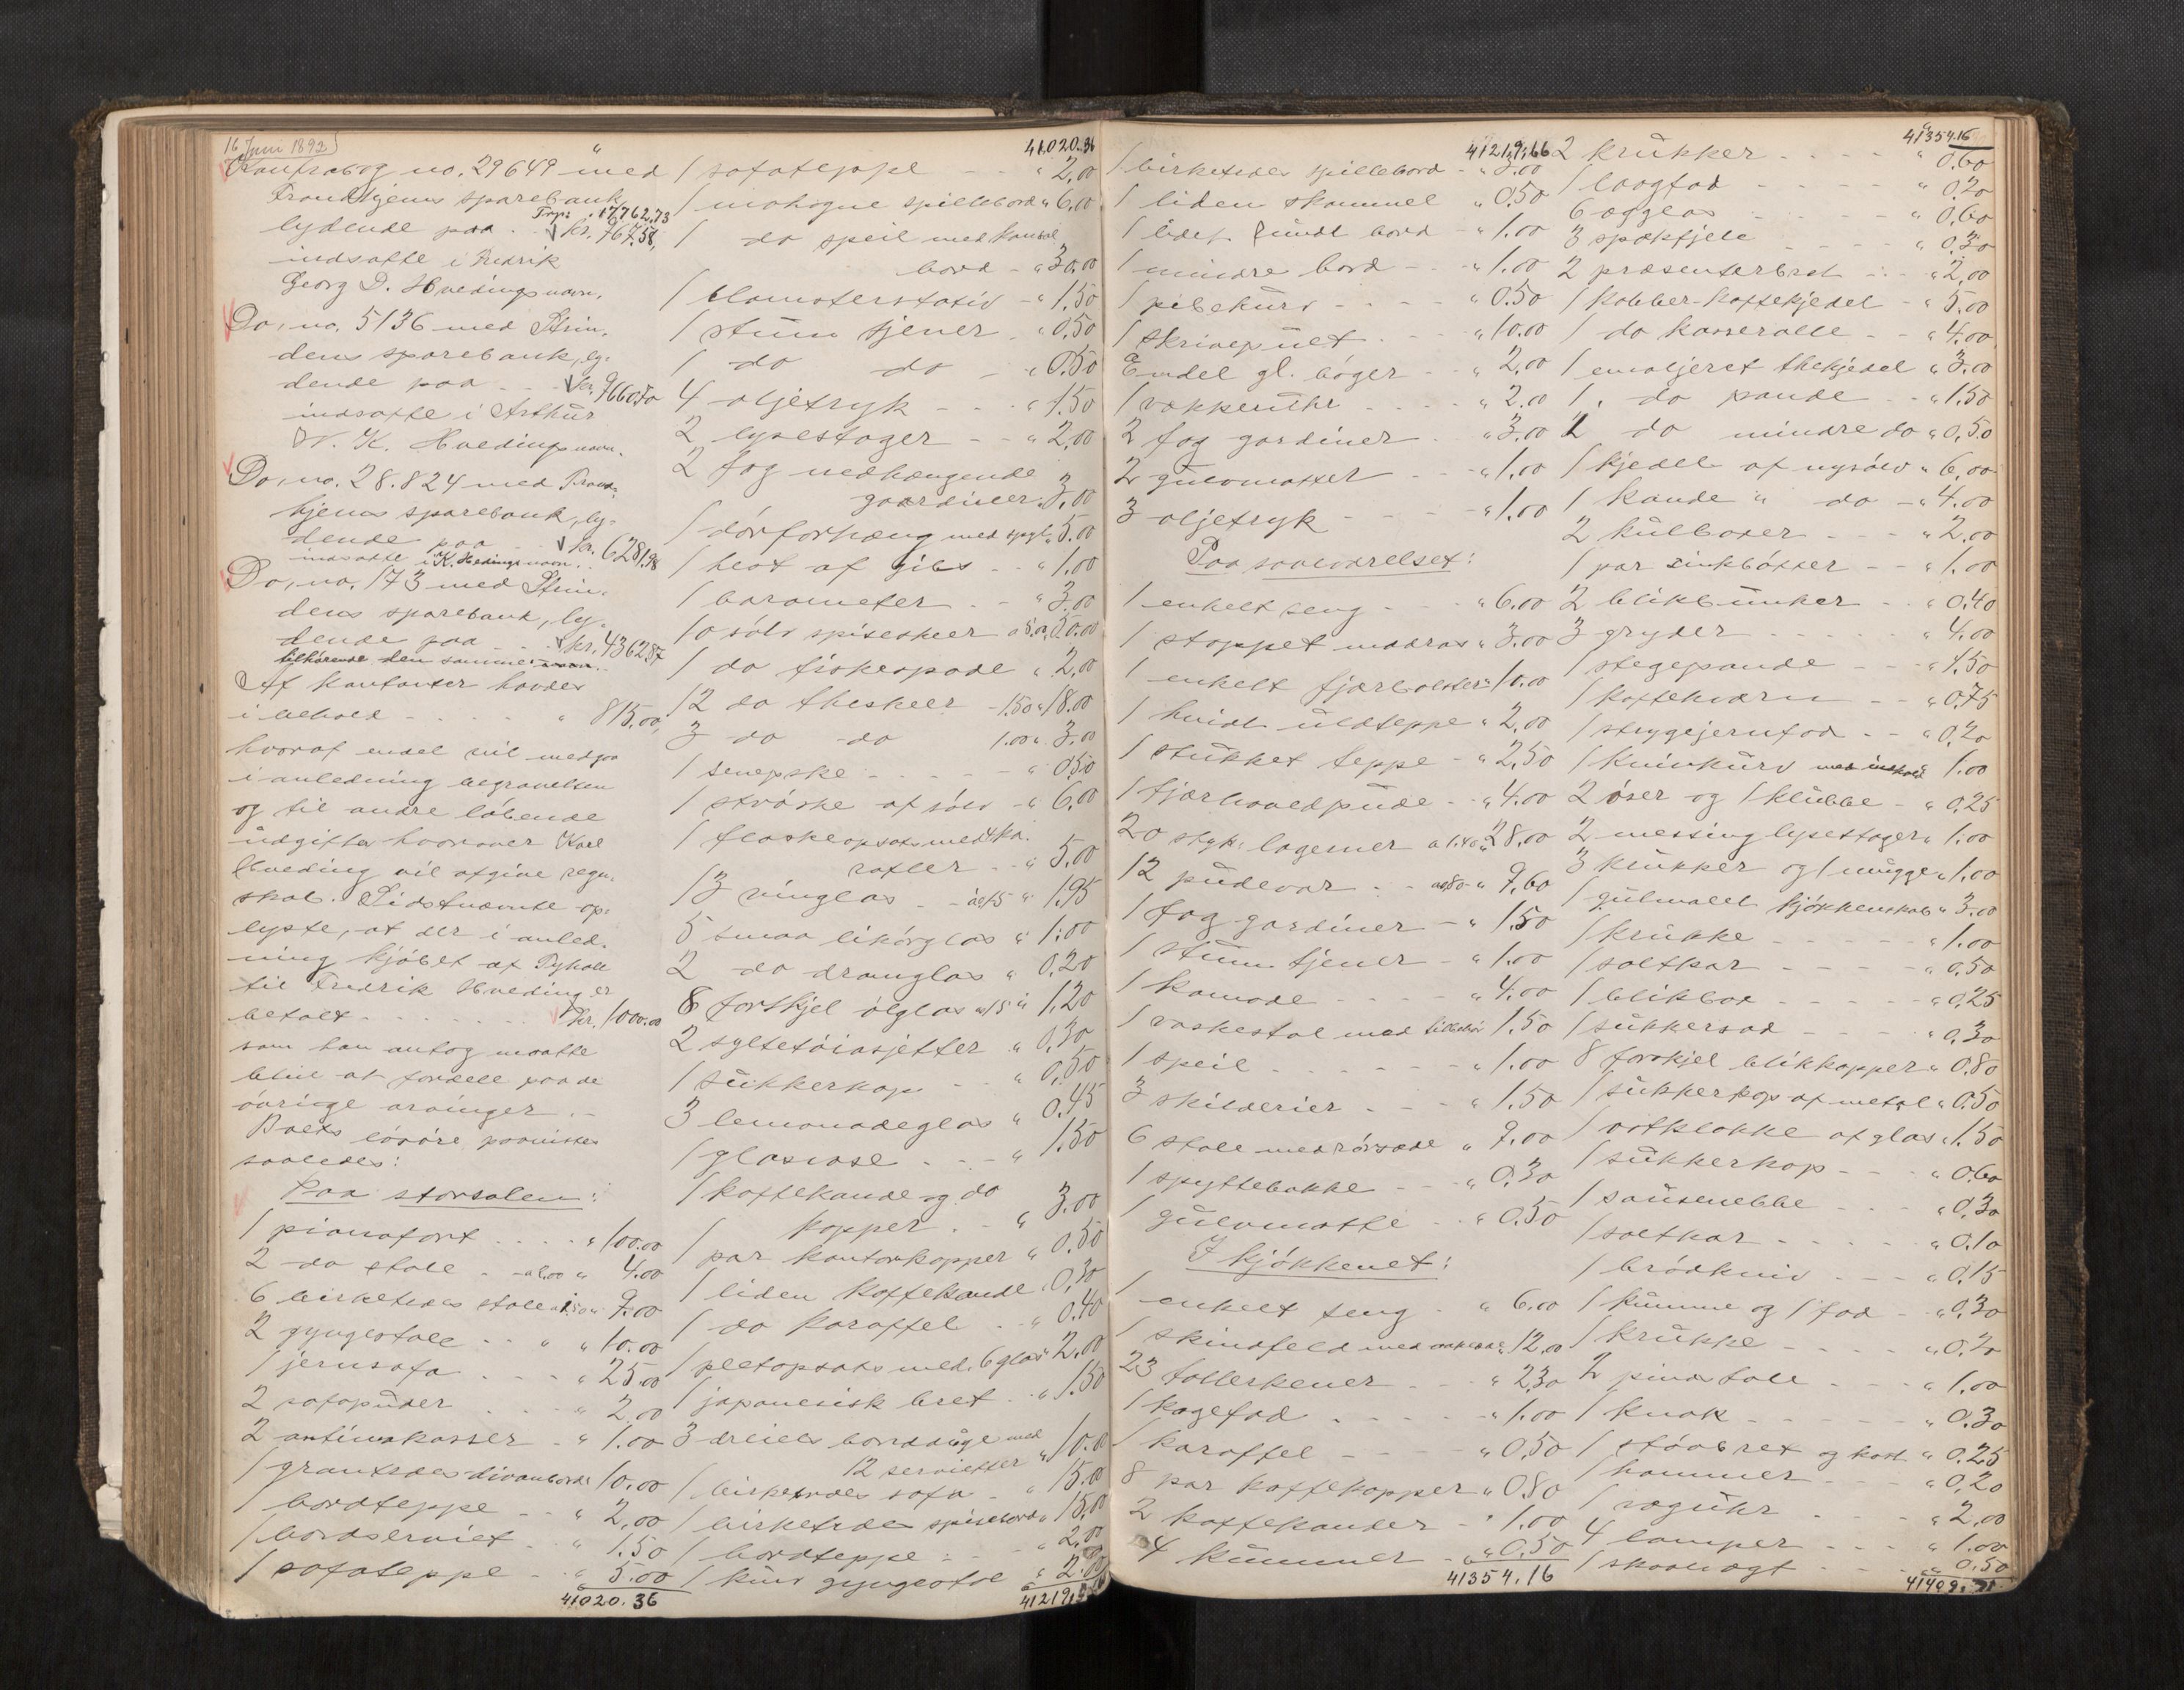 16 Juni 1892
Kontrabog no. 29649 med
Trondhjems sparebank
Trp: 17,762.73
lydende paa . kr. 767,58,
indsatte i Fredrik
Georg D. Hvedings navn.
Do. no. 5136 med Strin-
dens sparebank, ly-
dende paa . . kr. 9660,50
indsatte i Arthur
N. K. Hvedings navn.
Do. no. 28.824 med Trond-
hjems sparebank, ly-
dende paa . kr. 6281,98
indsatte i K. Hvedings navn.
Do. no. 173 med Strin-
dens sparebank, ly-
dende paa . . kr. 4362,87
tilhørende den samme
Af kontanter havdes
i behold . . . " 815,00,
hvoraf endel vil medgaa
i anledning begravelsen
og til andre løbende
udgifter hvorover Karl
Hveding vil afgive regn-
skab. Sidstnævnte op-
lyste, at der i anled-
ning kjøbet af Tyholt
til Fredrik Hveding er
betalt . . . . kr. 1000.00
som han antog maatte
blive at fordele paa de
øvrige arvinger. –
Boets løsøre paavistes
saaledes:
Paa storsalen:
1 pianofort . . . . " 100.00
2 do stole . - a 2.00 " 4.00
6 birketræs stole a 1.50 " 9.00
2 gyngestole . . " " 10.00
1 jernsofa . . . " 25.00
2 sofapuder . . . " 2.00
2 antimakasser . " 1.00
1 grantræs divanbord " 10.00
1 bordteppe . . " 2,00
1 bordserviet . . " 1.50
1 sofateppe . . " 5.00
41020.36
41.020.36
1 sofateppe - - " 2,00
1 mahogne spillebord " 6,00
1 do speil med konsol
bord - " 30,00
1 blomsterstativ - " 1,50
1 stum tjener . " 0,50
1 do do - " 0.50
4 oljetryk - - - " 1.50
2 lysestager - - " 2,00
2 fag nedhængende
gaardiner " 3,00
1 dørforhæng med spyd " 5.00
1 hest af gibs - - " 1.00
1 barometer . - " 3.00
10 sølv spiseskeer a 5.00 50.00
1 do fiskespade " 2,00
12 do theskeer - 1.50 " 18.00
3 do do 1.00 " 3,00
1 senepske - - - - " 0,50
1 strøske af sølv - " 6,00
1 flaskeopsats med 4 ka-
rafler . . " 5,00
13 vinglas - - a 0,15 " 1,95
5 smaa likørglas " 1.00
2 do dramglas " 0,20
8 forskjel ølglas a 15 " 1,20
2 syltetøiasjetter " 0,30
1 sukkerkop - - " 0,50
3 lemonadeglas " 0,45
1 glasvase . - - " 1.50
1 kaffekande og do
1 kopper . - " 3.00
1 par kontorkopper " 0,50
1 liden kaffekande " 0,30
1 do karaffel . . " 0,40
1 pletopsats med 6 glas " 2,00
1 japanesisk bret . " 1.50
3 dreiels bordduge med
12 servietter " 10.00
1 birketræs sofa - " 15.00
1 birketræs spisebord " 15,00
1 bordteppe : - - " 2,00
1 kurv gyngestol " 2.00
41219,66
41219,66
1 birketræs spillebord - " 3,00
1 liden skammel " 0,50
1 lidet rundt bord - " 1.00
1 mindre bord - - " 1.00
1 pibekurv - - - - " 0.50
1 skrivepult - - - " 10.00
Endel gl. bøger - - " 2,00
1 vækkeruhr - - - - " 2.00
2 fag gardiner - - " 3.00
2 gulvmatter - - " 1.00
3 oljetryk - - - - " 1.00
Paa soveværelset:
1 enkelt seng - - - " 6.00
1 stoppet madras " 3.00
1 enkelt fjærbolster " 10.00
1 hvidt uldteppe " 2,00
1 stukket teppe - " 2,50
1 fjærhovedpude - - " 4.00
20 styk. lagener a 1.40 " 28,00
12 pudevar - - a 0,80 " 9,60
1 fag gardiner - " 1.50
1 stum tjener - " 1.00
1 komode - - - - " 4.00
1 vaskestol med tilbehør 1.50
1 speil - - - - - - " 1.00
3 skilderier - - - " 1.50
6 stole med rørsæde " 9.00
1 spyttebakke - - - " 0.30
1 gulvmatte - - " 0.50
I kjøkkenet:
1 enkelt seng - " 6.00
1 skindfeld med " 12,00
23 tallerkener - - " 2,30
1 kagefad - - - - - " 1.00
1 karaffel - - - " 0,50
8 par kaffekopper " 0.80
2 kaffekander - " 1.00
4 kummer - " 0.50
41354.16
41354.16
2 krukker - - - - " 0.60
1 laagfad - - - - - " 0,20
6 ægglas - - - - " 0,60
3 spekfjele - - - - " 0,30
2 præsenterbret - - " 2,00
1 kobber-kaffekjedel - " 5.00
1 do kasserolle - - " 4.00
1 emaljeret thekjedel " 3.00
1 do pande - - " 1.50
1 do mindre do " 0,50
1 kjedel af nysølv " 6.00
1 kande " do - " 4.00
2 kulboxer - - - " 2,00
1 par zinkbøtter - - " 1.00
2 blikbunker - - " 0.40
3 gryder - - - - - " 4.00
1 stegepande - - - " 1.50
1 kaffekværn - - " 0.75
1 strygejernfod - - " 0,20
1 knivkurv med indhold " 1.00
2 øser og 1 klubbe - " 0.25
2 messing lysestager " 1.00
3 krukker og 1 mugge " 1.00
1 gulmalet kjøkkenskab " 3.00
1 krukke - - - - - " 1.00
1 saltkar - - - - " 0.50
1 blikbox - - - - - " 0.25
1 sukkersad - - - - " 0,30
8 forskjel blikkopper " 0.80
1 sukkerkop af metal " 0.50
1 ostklokke af glas " 1.50
1 sukkerkop - - - " 0.60
1 sausenebbe - - - " 0,30
1 saltkar - - - - - " 0.10
1 brødkniv - - - " 0,15
1 kumme og 1 fad - " 0,30
1 krukke - - - - " 0,20
2 pindstole - - - " 1.00
1 knak - - - - - - " 0.30
1 støvbret og kost " 0.25
1 hammer - - - " 0,20
1 væguhr - - - - " 2.00
4 lamper - - - " 1.00
1 skaalvægt - - - " 0.50